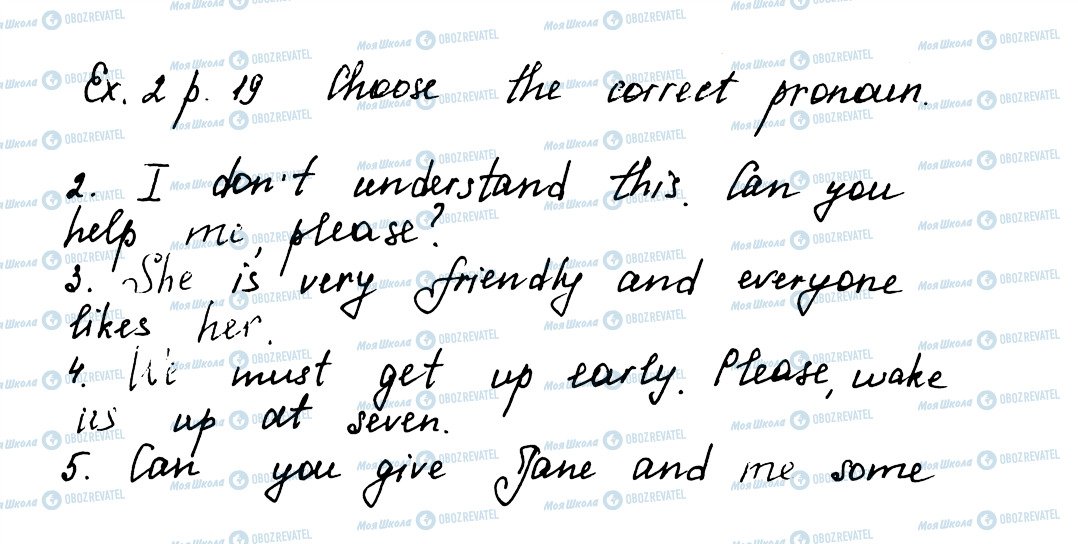 Ex. 2 p. 19 Choose the correct pronoun.
2. I don't understand this. Can you
help me, please?
3. She is very friendly and everyone
likes her.
4. We must get up early. Please, wake
us up at seven.
5. Can you give Jane and me some
Моя Школа OBOZREVATEL